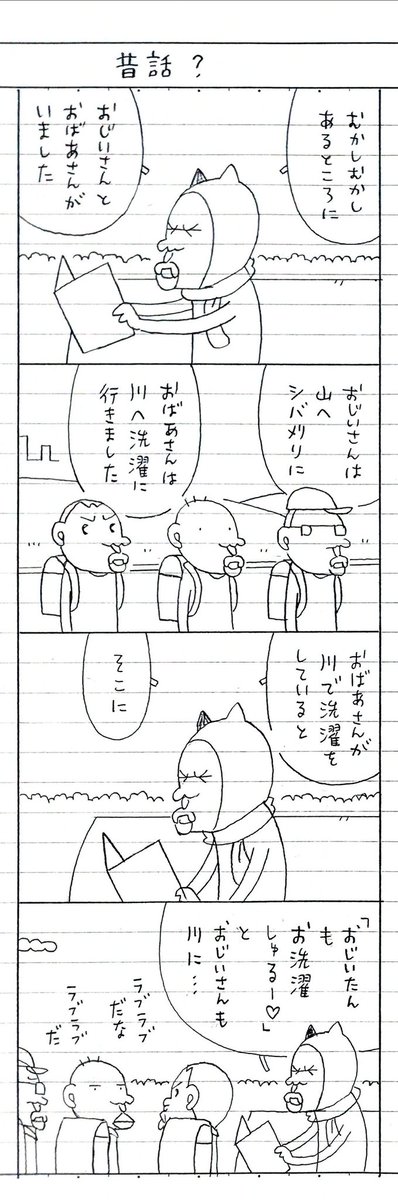 昔話？
むかしむかし
あるところに
おじいさんと
おばあさんが
いました
おじいさんは
山へ
シバ刈りに
おばあさんは
川へ洗濯に
行きました
おばあさんが
川で洗濯を
していると
そこに
「おじいたん
も
お洗濯
しゅるー♡」
と
おじいさんも
川に…
ラブラブ
だな
ラブラブ
だ